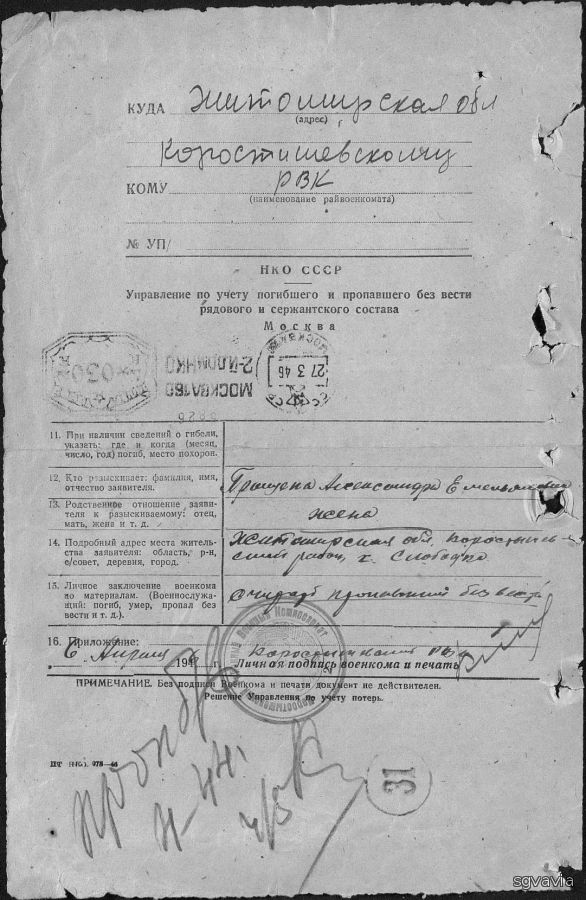 КУДА Житомирская обл
(адрес)
Коростишевскому
КОМУ РВК
(наименование райвоенкомата)
№ УП/
НКО СССР
Управление по учету погибшего и пропавшего без вести
рядового и сержантского состава
Москва
030
МОСКВА 160
27 3 46
11. При наличии сведений о гибели,
указать: где и когда (месяц,
число, год) погиб, место похорон.
12. Кто разыскивает: фамилия, имя,
отчество заявителя.
Александра Емельяновна
13. Родственное отношение заяви-
теля к разыскиваемому: отец,
мать, жена и т. д.
жена
14. Подробный адрес места житель-
ства заявителя: область, р-н,
с/совет, деревня, город.
Житомирская обл, Коростышев-
ский район, Слободка
15. Личное заключение военкома
по материалам. (Военнослужа-
щий: погиб, умер, пропал без
вести и т. д.).
Считать пропавший без вести
16. Приложение:
6 Апреля 194 г.
Личная подпись военкома и печать
ПРИМЕЧАНИЕ. Без подписи Военкома и печати документ не действителен.
Решение Управления по учету потерь.
проп б/в
44г.
31
sgvavia